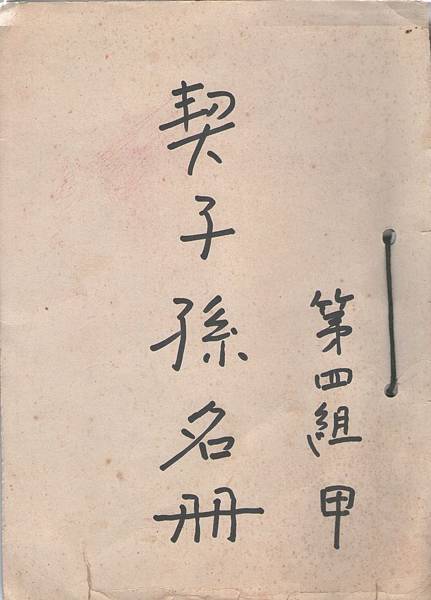 第四組 甲
契子孫名冊